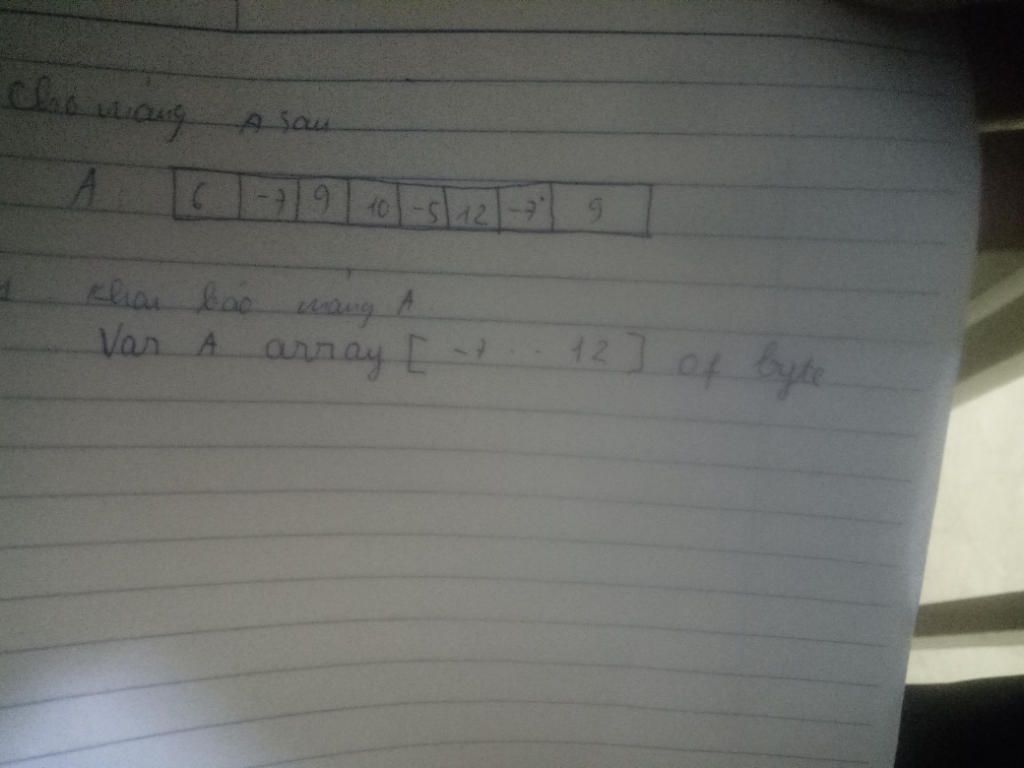 Cho mảng A sau
A 6 -7 9 10 -5 12 -7 9
1 Khai báo mảng A
Var A array [ -7 .. 12 ] of byte